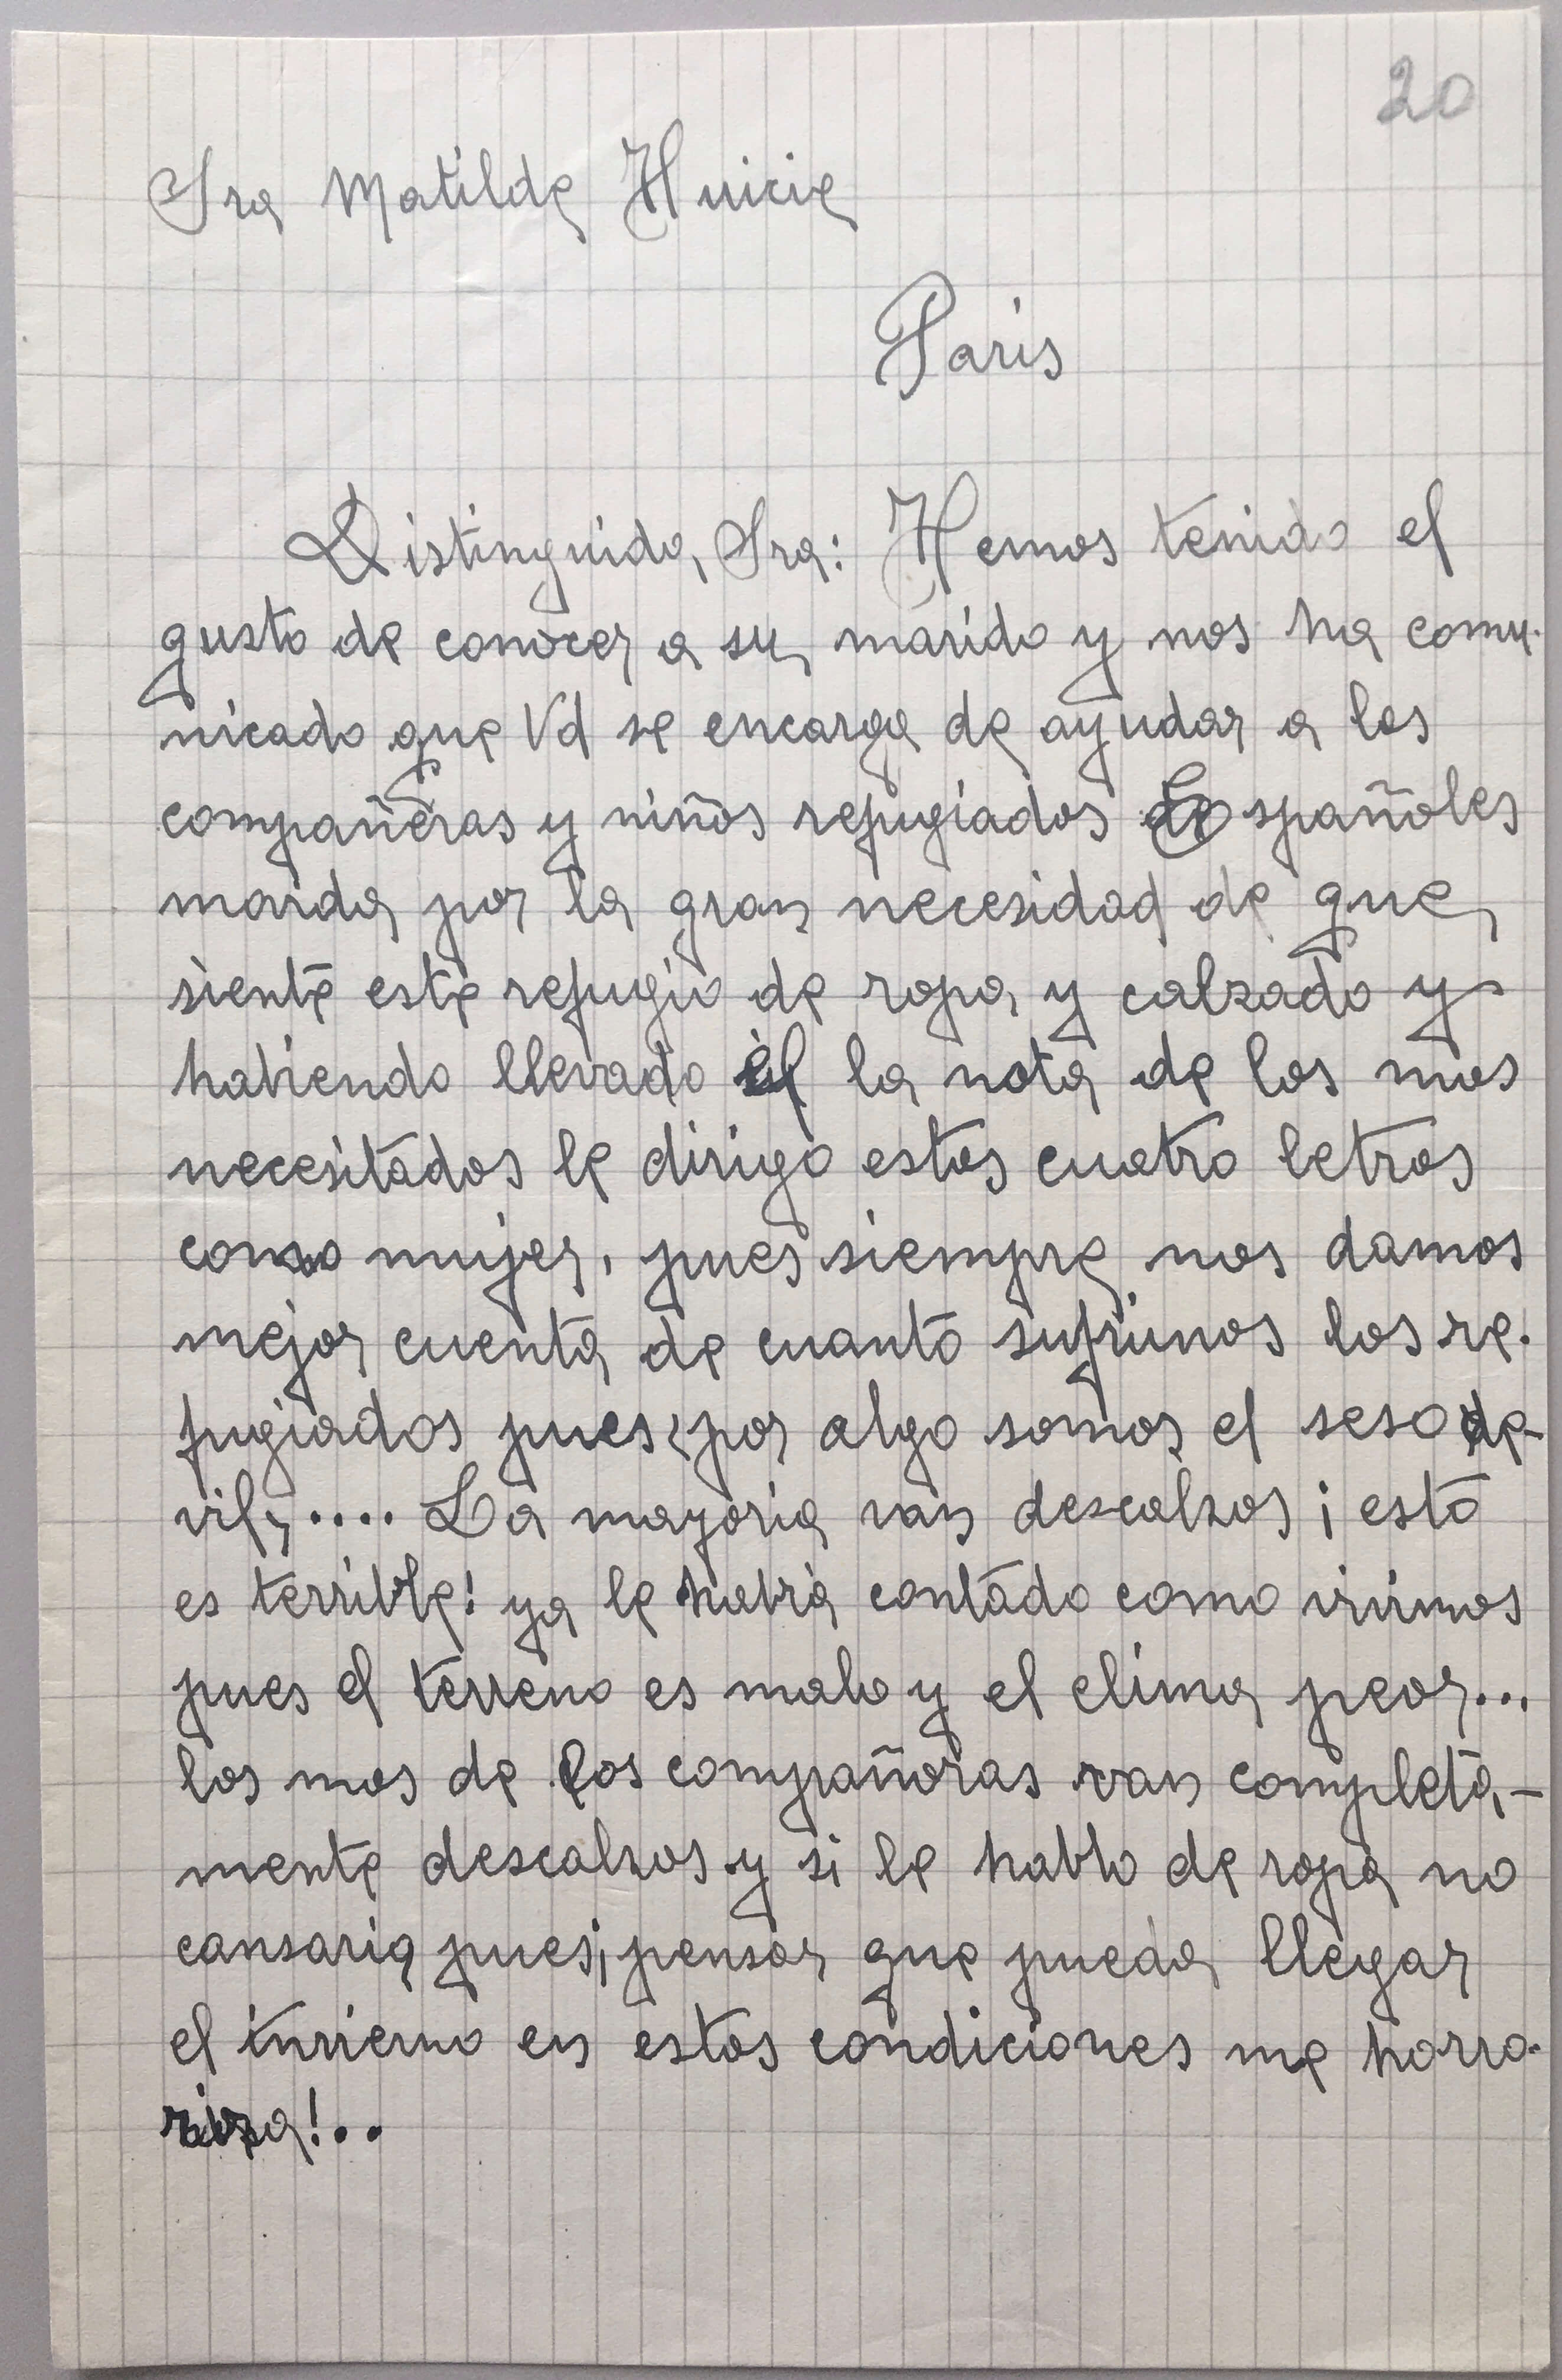 20
Sra Matilde Huicie
Paris
Distinguida Sra: Hemos tenido el
gusto de conocer a su marido y nos ha comu-
nicado que Vd se encarga de ayudar a las
compañeras y niños refugiados Españoles
movida por la gran necesidad de que
siente este refugio de ropa y calzado y
habiendo llevado él la nota de los mas
necesitados le dirijo estas cuatro letras
como mujer, pues siempre nos damos
mejor cuenta de cuanto sufrimos los re-
fugiados pues ¿por algo somos el sexo de-
vil,.... La mayoria van descalzos ¡esto
es terrible! ya le habrá contado como vivimos
pues el terreno es malo y el clima peor...
las mas de las compañeras van completa-
mente descalzas y si le hablo de ropa no
cansaria pues ¡pensar que pueda llegar
el invierno en estas condiciones me horro-
riza!..